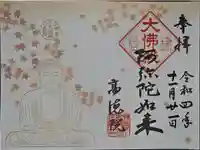 奉拝
令和四年
十一月廿一日
大佛
阿弥陀如来
高徳院